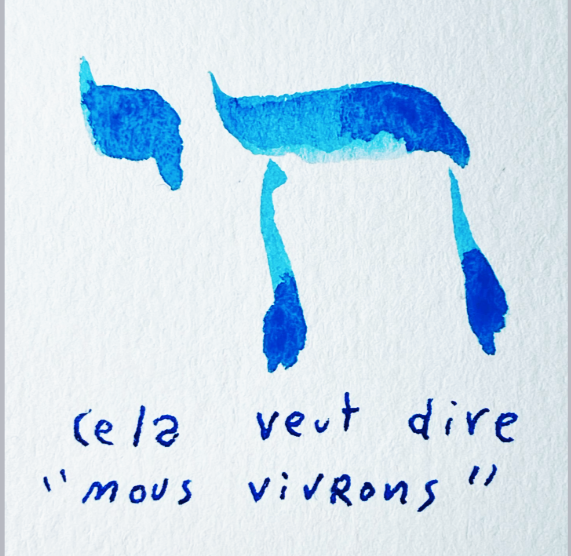 חי
cela veut dire
"nous vivRons"